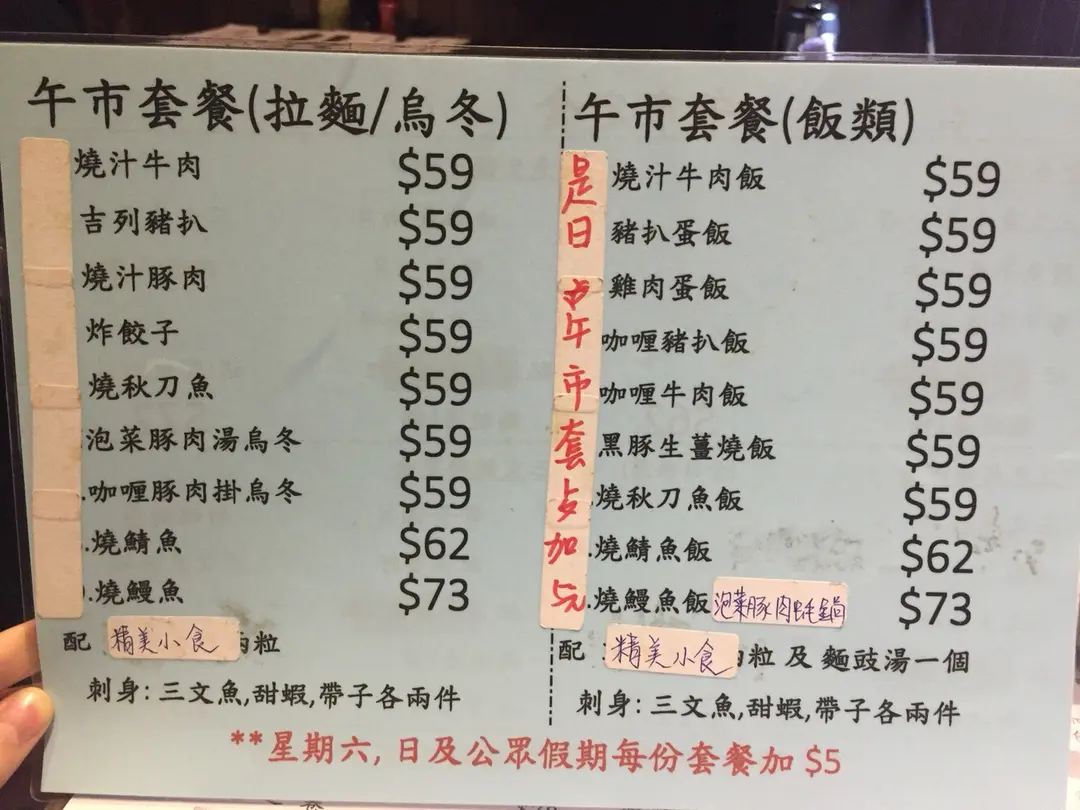 午市套餐(拉麵/烏冬)
燒汁牛肉 $59
吉列豬扒 $59
燒汁豚肉 $59
炸餃子 $59
燒秋刀魚 $59
泡菜豚肉湯烏冬 $59
.咖喱豚肉掛烏冬 $59
.燒鯖魚 $62
.燒鰻魚 $73
配 精美小食 粒
刺身: 三文魚,甜蝦,帶子各兩件
午市套餐(飯類)
是日午市套 加 5元
燒汁牛肉飯 $59
豬扒蛋飯 $59
雞肉蛋飯 $59
咖喱豬扒飯 $59
咖喱牛肉飯 $59
黑豚生薑燒飯 $59
.燒秋刀魚飯 $59
.燒鯖魚飯 $62
.燒鰻魚飯 泡菜豚肉 鍋 $73
配 : 精美小食 粒 及 麵豉湯一個
刺身: 三文魚,甜蝦,帶子各兩件
**星期六, 日及公眾假期每份套餐加 $5